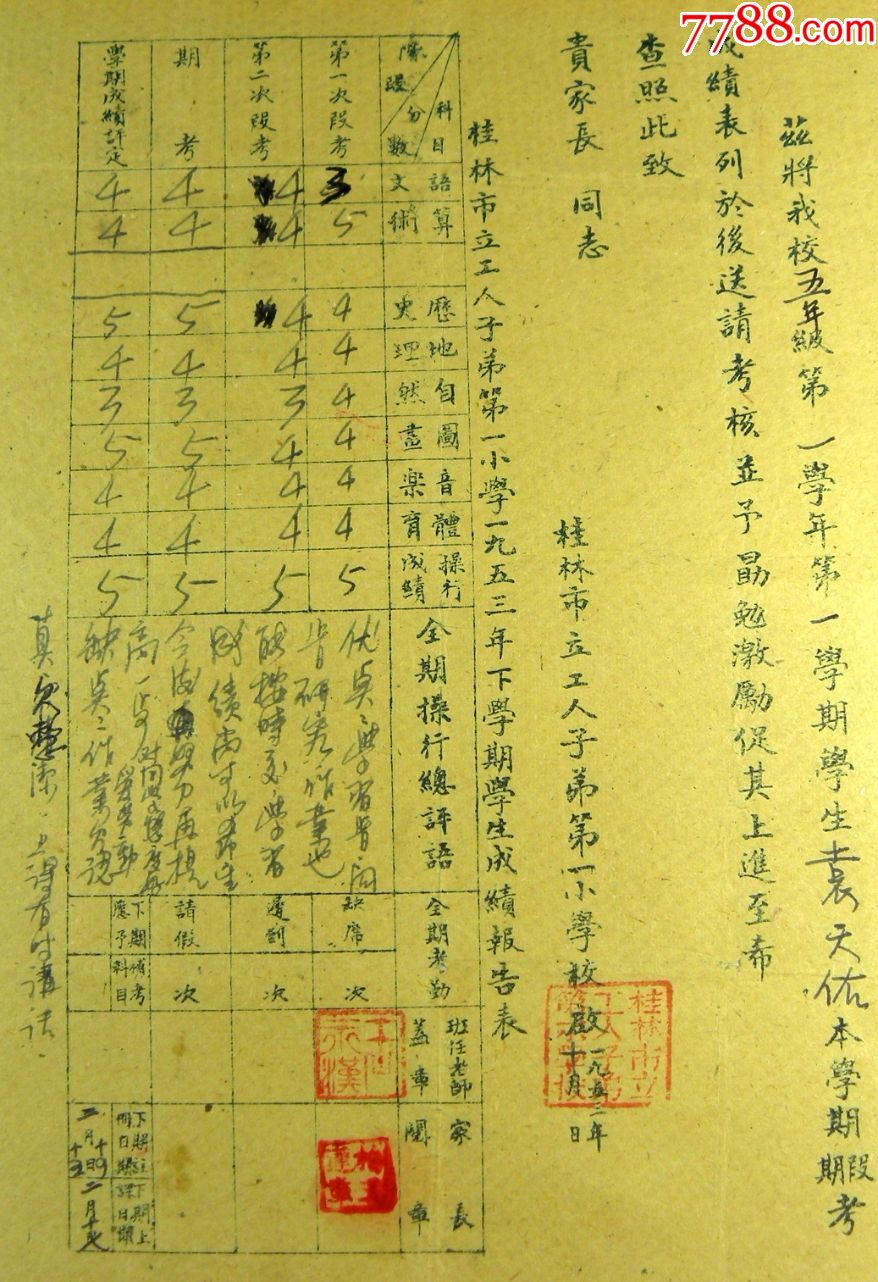 7788.com
茲將我校五年級第一學年第一學期學生袁天佑本學期假期考
成績表列於後送請考核並予勗勉激勵促其上進至希
查照此致
貴家長 同志
桂林市立工人子弟第一小學校啟 一九五三年十月 日
桂林市立工人子弟第一小學一九五三年下學期學生成績報告表
科目 分數 語文 算術 歷史 地理 自然 圖畫 音樂 體育 操行成績 全期操行總評語 全期考勤 班任老師蓋章 家長閱章
第一次段考 3 5 4 4 4 4 4 4 5
第二次段考 4 4 4 4 3 4 4 4 5
期考 4 4 5 4 3 5 4 4 5
學期成績評定 4 4 5 4 3 5 4 4 5
優點:學習肯問
肯研究作業也
能按時交學習
成績尚可以希望
今後努力再提
高一步
缺點:作業欠認
真欠整潔.上課有時講話.
缺席 次
遲到 次
請假 次
下期應予補考科目
下期註冊日期
下期上課日期
桂林市立
工人子弟